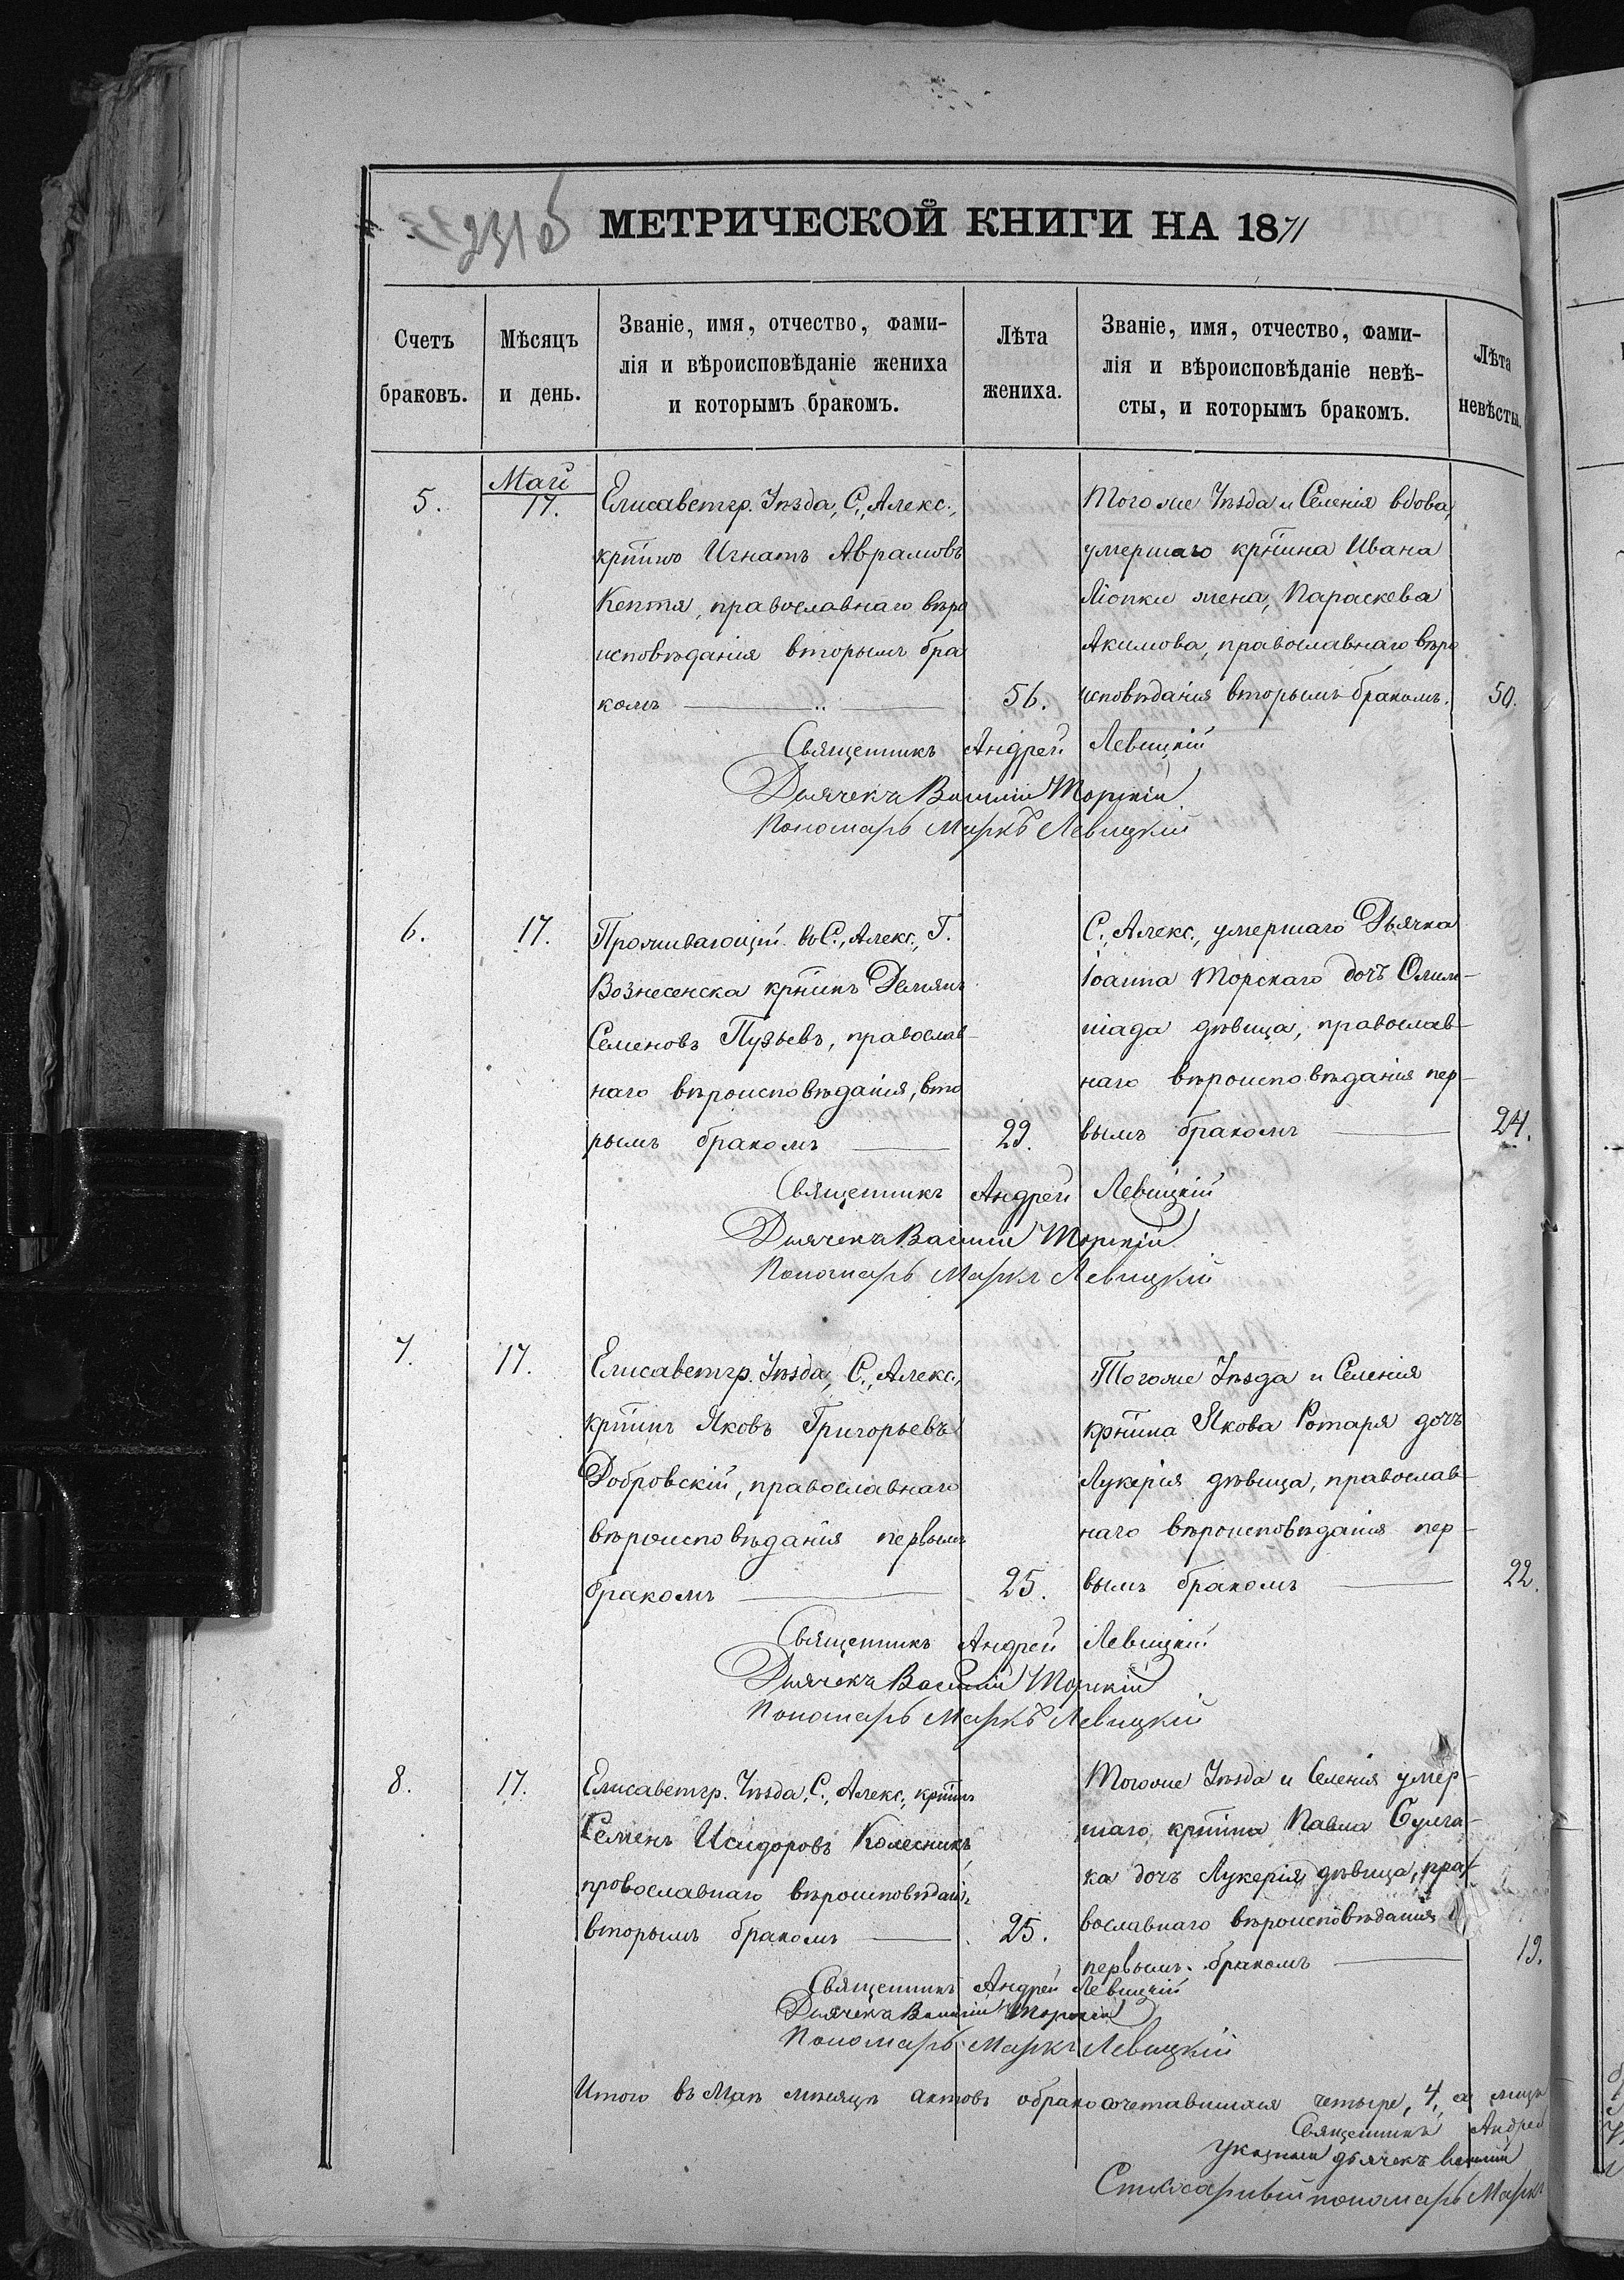 231 б
МЕТРИЧЕСКОЙ КНИГИ НА 1871
Счетъ браковъ.
Мѣсяцъ и день.
Званіе, имя, отчество, фами-
лія и вѣроисповѣданіе жениха
и которымъ бракомъ.
Лѣта жениха.
Званіе, имя, отчество, фами-
лія и вѣроисповѣданіе невѣ-
сты, и которымъ бракомъ.
Лѣта невѣсты.
Май
5.
17.
Елисаветгр. Уѣзда, С., Алекс.,
крѣпинъ Игнатъ Аврамовъ
Кептя, православнаго вѣро
исповѣданія вторымъ бра
комъ
56.
Тогоже Уѣзда и Селенія вдова,
умершаго крѣпина Ивана
Ліопки жена, Параскева
Акимова, православнаго вѣро
исповѣданія вторымъ бракомъ.
50.
Священникъ Андрей Левицкій
Дьячекъ Василій Торскій
Пономарь Маркъ Левицкій
6.
17.
Проживающій въ С., Алекс., Г.
Вознесенска крѣпинъ Демянъ
Семеновъ Пузьевъ, православ-
наго вѣроисповѣданія, вто
рымъ бракомъ
29.
С., Алекс., умершаго Дьячка
Іоанна Торскаго дочъ Олим-
піада дѣвица, православ-
наго вѣроисповѣданія пер-
вымъ бракомъ
24.
Священникъ Андрей Левицкій
Дьячекъ Василій Торскій
Пономарь Маркъ Левицкій
7.
17.
Елисаветгр. Уѣзда, С., Алекс.,
крѣпинъ Яковъ Григорьевъ
Добровскій, православнаго
вѣроисповѣданія первымъ
бракомъ
25.
Тогоже Уѣзда и Селенія
крѣпина Якова Ротаря дочъ
Лукерія дѣвица, православ-
наго вѣроисповѣданія пер-
вымъ бракомъ
22.
Священникъ Андрей Левицкій
Дьячекъ Василій Торскій
Пономарь Маркъ Левицкій
8.
17.
Елисаветгр. Уѣзда, С., Алекс., крѣпинъ
Семенъ Исидоровъ Колесникъ
провославнаго вѣроисповѣданія
вторымъ бракомъ
25.
Тогоже Уѣзда и Селенія умер-
шаго крѣпина Павла
ка дочъ Лукерія дѣвица, пра-
вославнаго вѣроисповѣданія
первымъ бракомъ
19.
Священникъ Андрей Левицкій
Дьячекъ Василій Торскій
Пономарь Маркъ Левицкій
Итого въ Маѣ мѣсяцѣ актовъ о бракосочетавшихся четыре, 4, а лицъ
Священникъ Андрей
Указный дьячекъ Василій
пономарь Маркъ